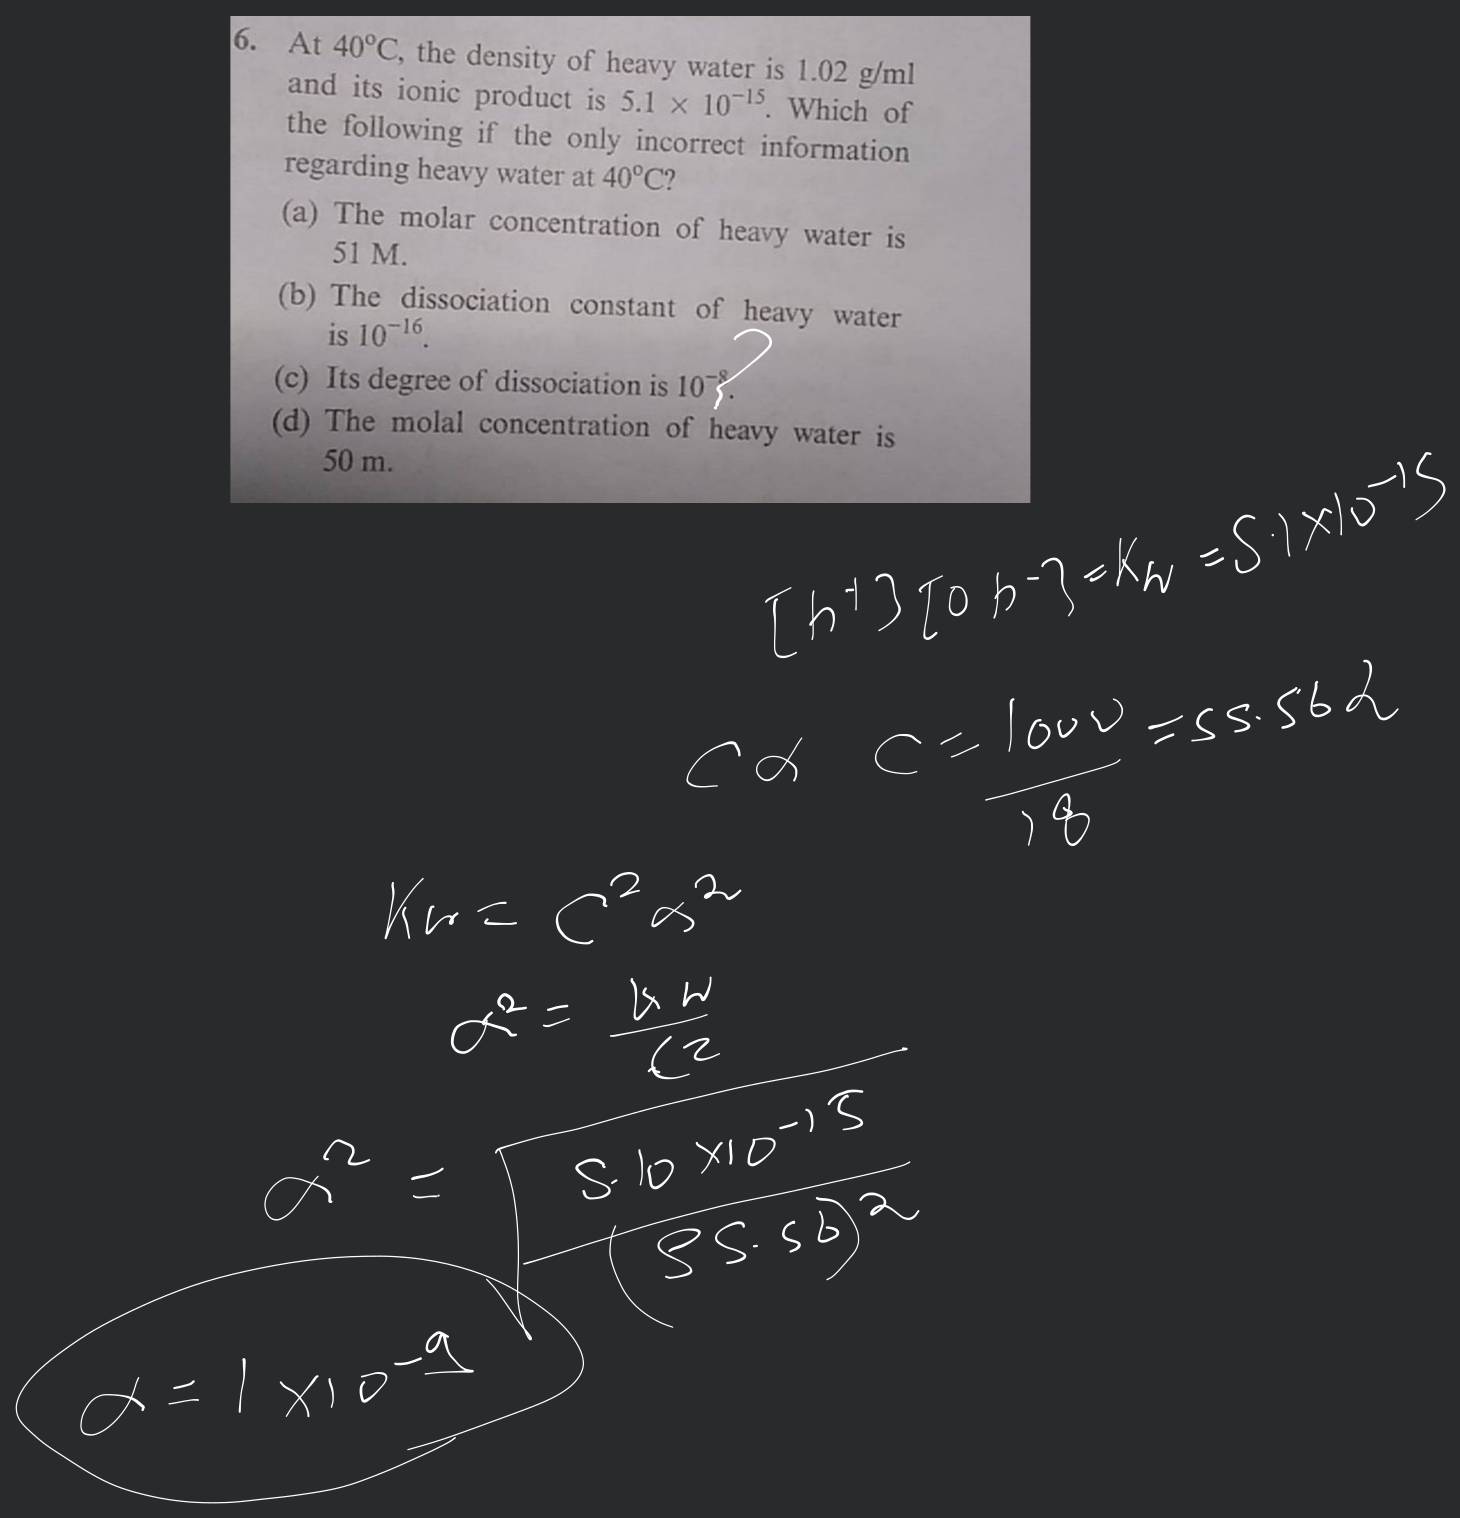 6. At 40°C, the density of heavy water is 1.02 g/ml
and its ionic product is 5.1 × 10⁻¹⁵. Which of
the following if the only incorrect information
regarding heavy water at 40°C?
(a) The molar concentration of heavy water is
51 M.
(b) The dissociation constant of heavy water
is 10⁻¹⁶.
(c) Its degree of dissociation is 10⁻⁸.
(d) The molal concentration of heavy water is
50 m.
?
[h⁺][oh⁻] = Kw = 5.1×10⁻¹⁵
Cα C = 1000/18 = 55.56α
Kw = C²α²
α² = Kw/C²
α² = √5.10×10⁻¹⁵/(55.56)²
α = 1×10⁻⁹